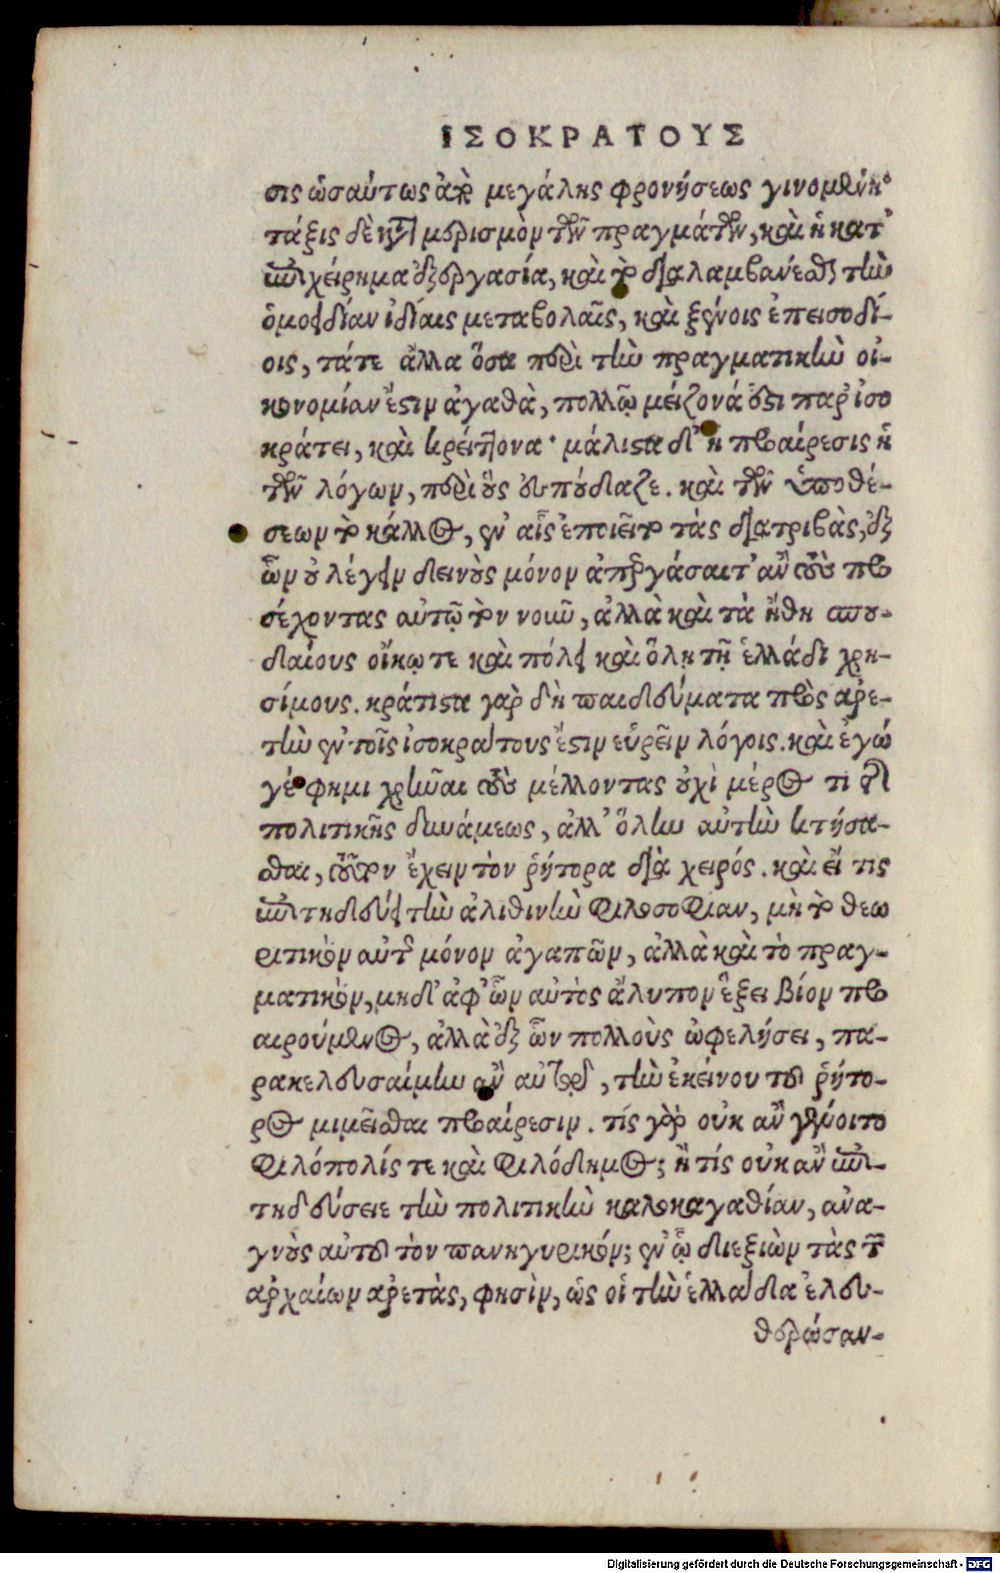 ΙΣΟΚΡΑΤΟΥΣ
σις ὡσαύτως ἀπὸ μεγάλης φρονήσεως γινομένη·
τάξις δὲ καὶ μερισμὸν τῶν πραγμάτων, καὶ ἡ κατ'
ἐπιχείρημα ἐξεργασία, καὶ τὸ διαλαμβάνεσθαι τὴν
ὁμοείδιαν ἰδίαις μεταβολαῖς, καὶ ξένοις ἐπεισοδί-
οις, τάτε ἄλλα ὅσα περὶ τὴν πραγματικὴν οἰ-
κονομίαν ἔστιν ἀγαθὰ, πολλῷ μείζονά ἐστι παρ' ἰσο
κράτει, καὶ κρείττονα· μάλιστα δ' ἡ προαίρεσις ἡ
τῶν λόγων, περὶ οὓς ἐσπούδαζε. καὶ τῶν ὑποθέ-
σεων τὸ κάλλος, ἐν αἷς ἐποιεῖτο τὰς διατριβὰς, ἐξ
ὧν οὐ λέγειν δεινοὺς μόνον ἀπεργάσαιτ' ἂν τοὺς προ
σέχοντας αὐτῷ τὸν νοῦν, ἀλλὰ καὶ τὰ ἤθη σπου-
δαίους οἴκῳ τε καὶ πόλει καὶ ὅλῃ τῇ ἑλλάδι χρη-
σίμους. κράτιστα γὰρ δὴ παιδεύματα πρὸς ἀρε-
τὴν ἐν τοῖς ἰσοκράτους ἔστιν εὑρεῖν λόγοις. καὶ ἐγώ
γέ φημι χρῆναι τοὺς μέλλοντας οὐχὶ μέρος τι τῆς
πολιτικῆς δυνάμεως, ἀλλ' ὅλην αὐτὴν κτήσα-
σθαι, τοῦτον ἔχειν τὸν ῥήτορα διὰ χειρός. καὶ εἴ τις
ἐπιτηδεύει τὴν ἀλιθινὴν φιλοσοφίαν, μὴ τὸ θεω
ριτικὸν αὐτῆς μόνον ἀγαπῶν, ἀλλὰ καὶ τὸ πραγ-
ματικὸν, μηδ' ἀφ' ὧν αὐτὸς ἄλυπον ἕξει βίον προ
αιρούμενος, ἀλλὰ ἐξ ὧν πολλοὺς ὠφελήσει, πα-
ρακελευσαίμην ἂν αὐτῷ, τὴν ἐκείνου τοῦ ῥήτο-
ρος μιμεῖσθαι προαίρεσιν. τίς γὰρ οὐκ ἂν γένοιτο
φιλόπολίς τε καὶ φιλόδημος; ἢ τίς οὐκ ἂν ἐπι-
τηδεύσειε τὴν πολιτικὴν καλοκαγαθίαν, ἀνα-
γνοὺς αὐτοῦ τὸν πανηγυρικόν; ἐν ᾧ διεξιὼν τὰς τῶν
ἀρχαίων ἀρετὰς, φησὶν, ὡς οἱ τὴν ἑλλάδα ἐλευ-
θερώσαν-
Digitalisierung gefördert durch die Deutsche Forschungsgemeinschaft - DFG